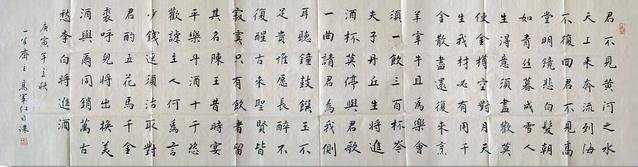 君不見黄河之水
天上来奔流到海
不復回君不見高
堂明鏡悲白髮朝
如青丝暮成雪人
生得意須盡歡莫
使金樽空對月天
生我材必有用千
金散盡還復来烹
羊宰牛且為樂會
須一飲三百杯岑
夫子丹丘生將進
酒杯莫停與君歌
一曲請君為我側
耳聽鐘鼓饌玉不
足貴惟愿長醉不
復醒古来聖賢皆
寂寞只有飲者留
其名陳王昔時宴
平樂斗酒十千恣
歡謔主人何為言
少錢須沽取對
君酌五花馬千金
裘呼兒將出換美
酒與爾同銷萬古
愁李白將進酒
庚寅年之秋
一齋主高軍红日課